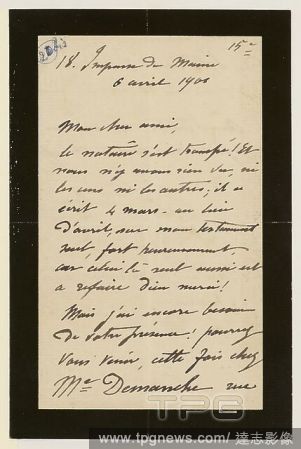 15e
18. Impasse du Maine
6 avril 1906
Mon cher ami,
le notaire s'est trompé ! Et
nous n'y avons rien vu, ni
les uns ni les autres ; il a
écrit 4 mars - au lieu
d'avril, sur mon testament
seul, fort heureusement,
car celui-là seul aussi est
à refaire Dieu merci !
Mais j'ai encore besoin
de votre présence ! pourrez
vous venir, cette fois chez
Me Demanche rue
TPG
www.tpgnews.com / 達志影像